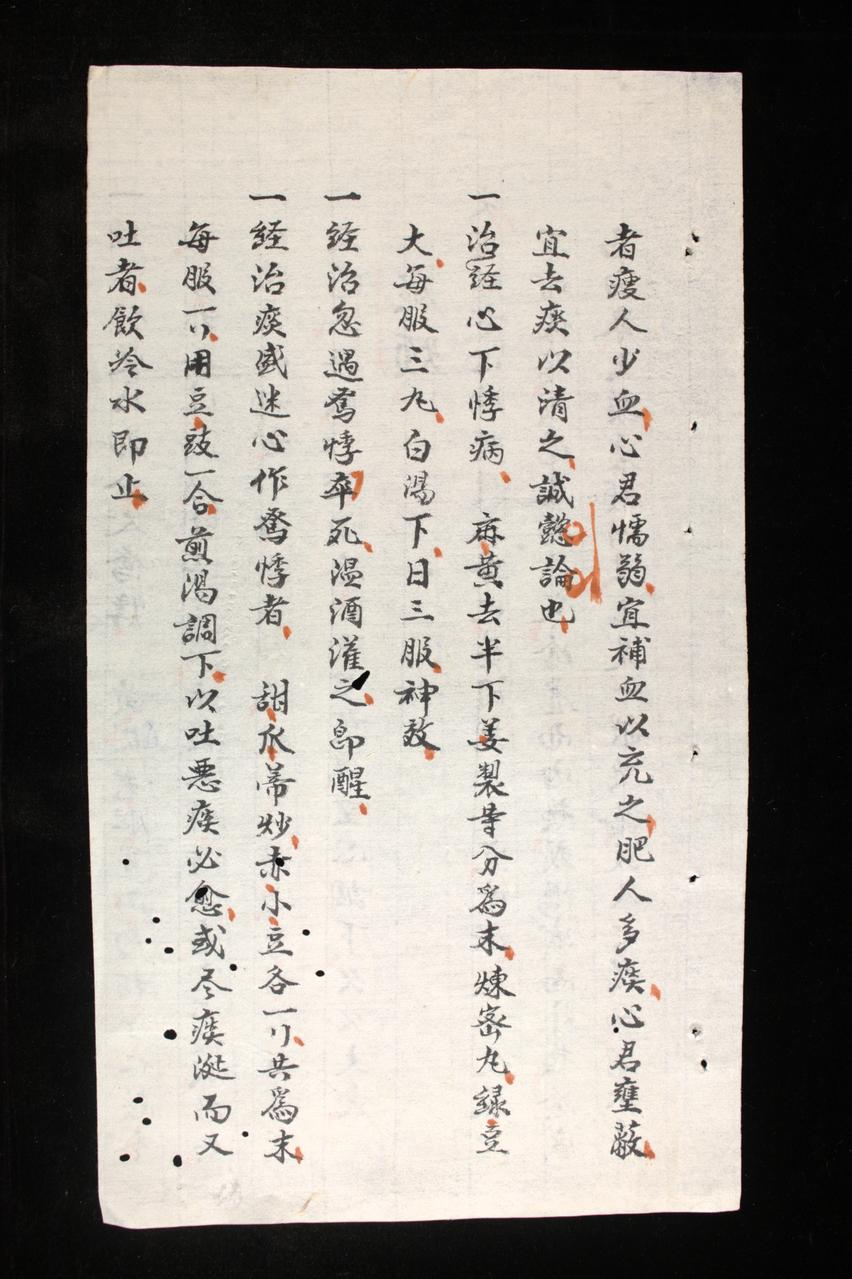 者瘦人少血心君懦弱宜補血以充之肥人多痰心君壅蔽
宜去痰以清之誠懿論也
一治経心下悸病 麻黄去半下姜製等分爲末煉密丸綠豆
大每服三丸白湯下日三服神效
一経治忽遇驚悸卒死温酒灌之即醒
一経治痰盛迷心作驚悸者 甜瓜蒂炒赤小豆各一刂共爲末
每服一刂用豆豉一合煎湯調下以吐悪痰必愈或尽痰涎而又
吐者飲冷水即止